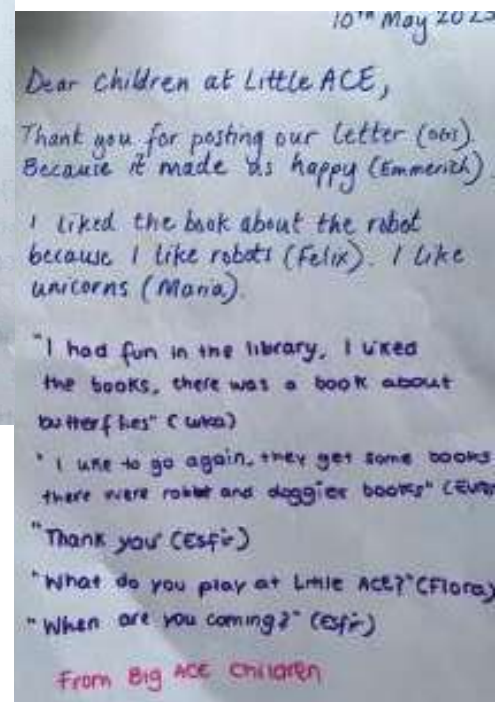 10th May 202
Dear Children at Little ACE,
Thank you for posting our letter
Because it made us happy (Emmerich).
I liked the book about the robot
because I like robots (Felix). I like
unicorns (Maria).
"I had fun in the library, I liked
the books, there was a book about
butterflies" (Luka)
"I like to go again, they get some books
there were and doggies books"
"Thank you" (Esfir)
"What do you play at Little ACE?" (Flora)
"When are you coming?" (Esfir)
From Big ACE Children